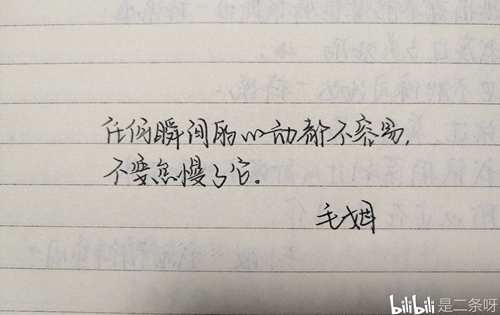 任何瞬间的心动都不容易,
不要怠慢了它。
毛姆
bilibili 是二条呀